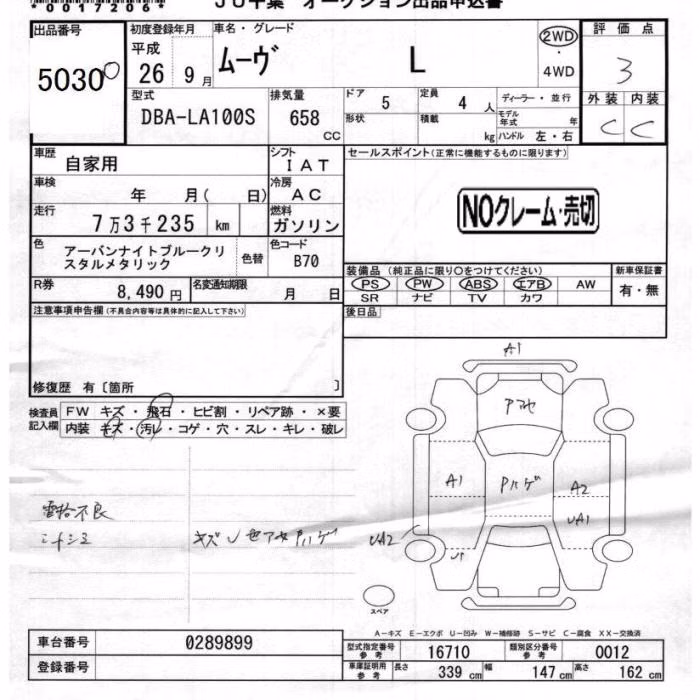 JU千葉 オークション出品申込書
出品番号 初度登録年月 車名・グレード 2WD 評価点
50300 平成 26年 9月 ムーヴ L ・ 4WD 3
型式 排気量 ドア 5 定員 4 人 ディーラー・並行 外装 内装
DBA-LA100S 658 CC 形状 積載 kg モデル年式 年 ハンドル 左・右 C C
車歴 自家用 シフト IAT セールスポイント(正常に機能するものに限ります)
車検 年 月( 日) 冷房 AC
走行 7万3千235 km 燃料 ガソリン NOクレーム・売切
色 アーバンナイトブルークリ 色替 色コード B70
スタルメタリック
装備品(純正品に限り○をつけてください) 新車保証書
R券 8,490円 名変通知期限 月 日 PS PW ABS エアB AW 有・無
SR ナビ TV カワ
注意事項申告欄(不具合内容等は具体的に記入して下さい) 後日品
修復歴 有〔箇所 〕
検査員記入欄 FW キズ・飛石・ヒビ割・リペア跡・×要
内装 キズ・汚レ・コゲ・穴・スレ・キレ・破レ
A1
アマセ
A1 Pハゲ A2
UA1
UA2
キズ
Pハゲ
スペア
A-キズ E-エクボ U-凹み W-補修跡 S-サビ C-腐食 XX-交換済
車台番号 0289899 型式指定番号参考 16710 類別区分番号参考 0012
登録番号 車庫証明用参考 長さ 339 cm 幅 147 cm 高さ 162 cm